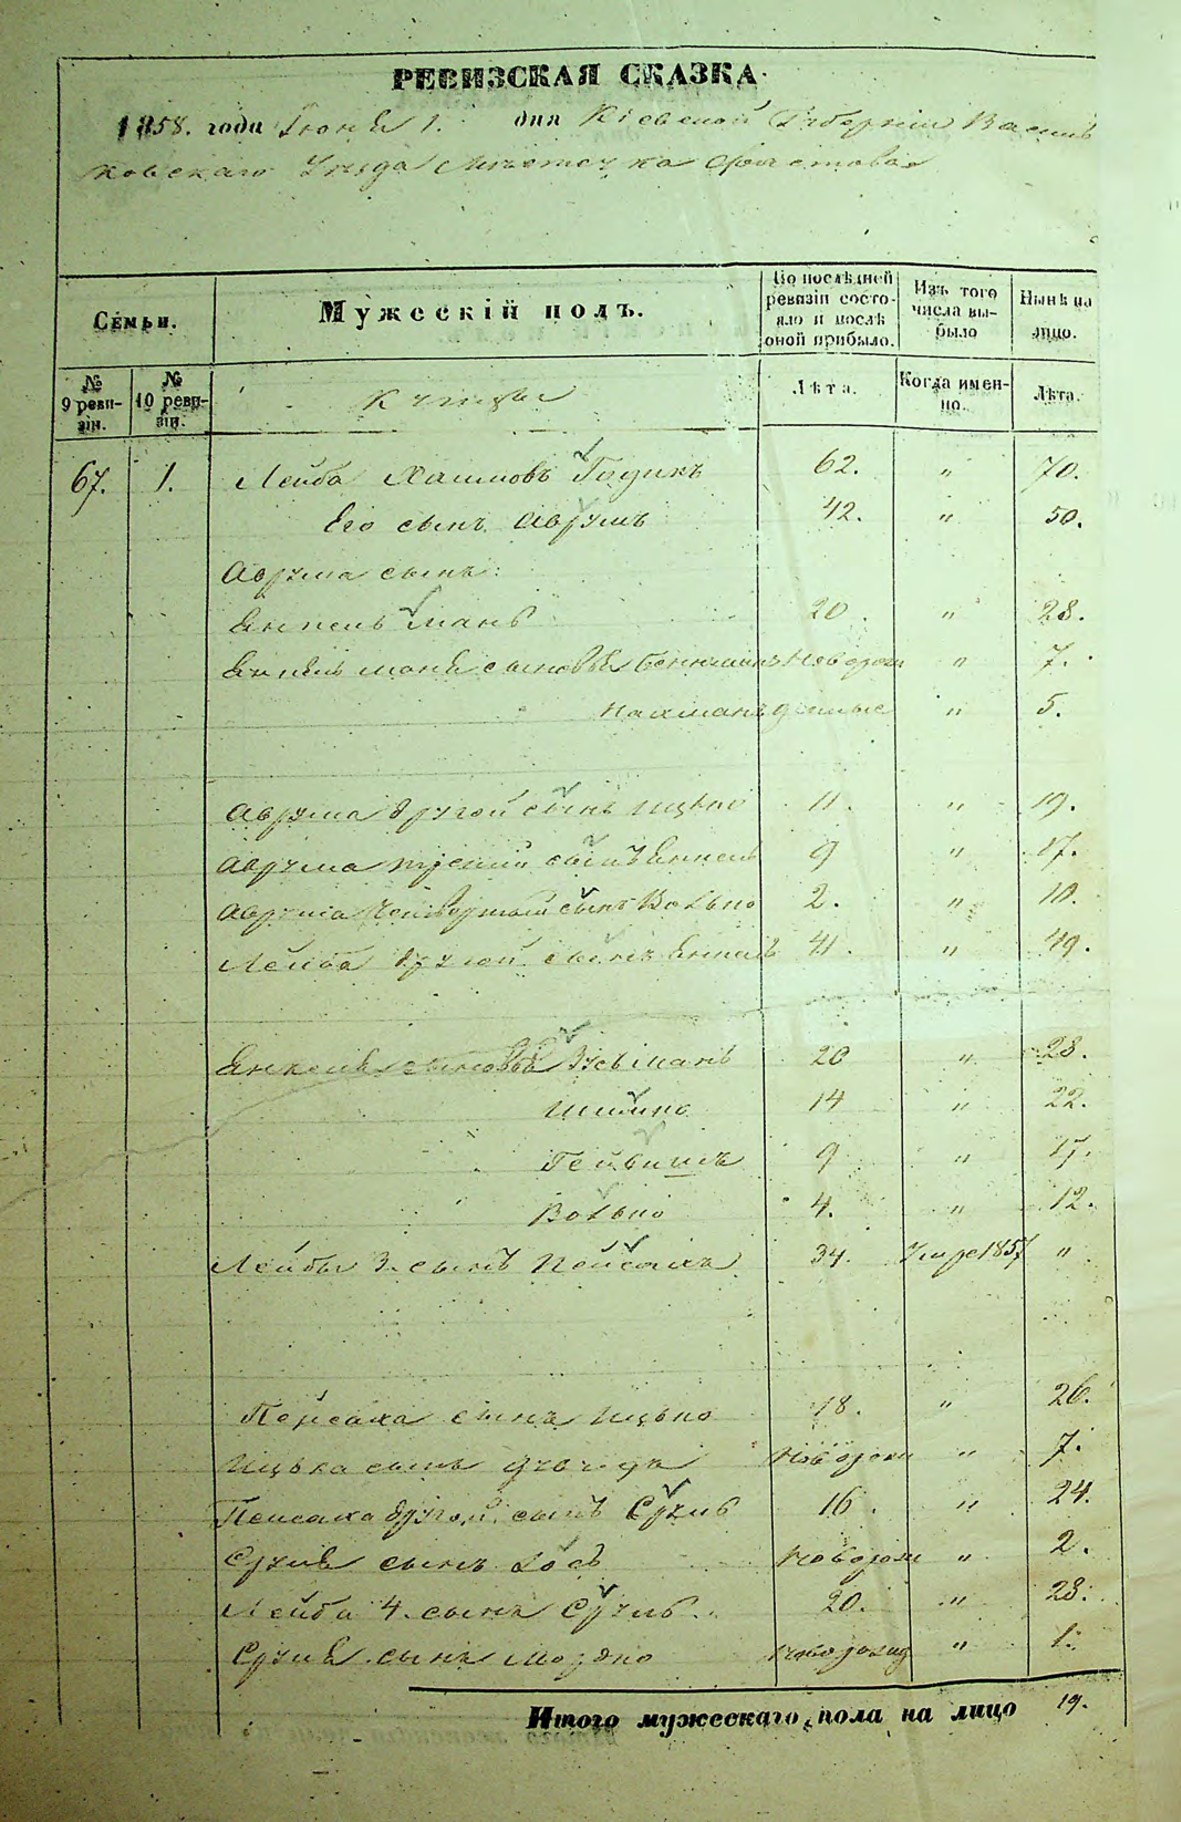 РЕВИЗСКАЯ СКАЗКА
1858. года Іюня 1. дня Кіевской Губерніи Василь
ковскаго Уезда Мѣстечка Фастова
Семьи.
Мужескій полъ.
По послѣдней ревизіи состояло и послѣ оной прибыло.
Изъ того числа выбыло
Нынѣ на лицо.
№ 9 ревизіи.
№ 10 ревизіи.
Купцы
Лѣта.
Когда именно.
Лѣта.
67. 1. Лейба Хаимовъ Годикъ 62. " 70.
Его сынъ Аврумъ 42. " 50.
Аврума сынъ:
Янкель Манъ 20. " 28.
Янкель Маня сыновья Беньминъ Новорож " 7.
Нахманъ денные " 5.
Аврума другой сынъ Ицько 11. " 19.
Аврума третій сынъ Янкель 9 " 17.
Аврума четвертый сынъ Волько 2. " 10.
Лейба другой сынъ Янкель 41. " 49.
Янкеля сыновья Зусьманъ 20 " 28.
Шимко 14 " 22.
9 " 17.
Волько 4. " 12.
Лейбы 3. сынъ Пейсахъ 34. Умре 1857 "
Пейсаха сынъ Ицько 18. " 26.
Ицька сынъ Новорож " 7.
Пейсаха другой сынъ Сруль 16. " 24.
Сруля сынъ Новорож " 2.
Лейба 4. сынъ Сруль 20. " 28.
Сруля сынъ Мордко Новорожд " 1.
Итого мужескаго пола на лицо 19.